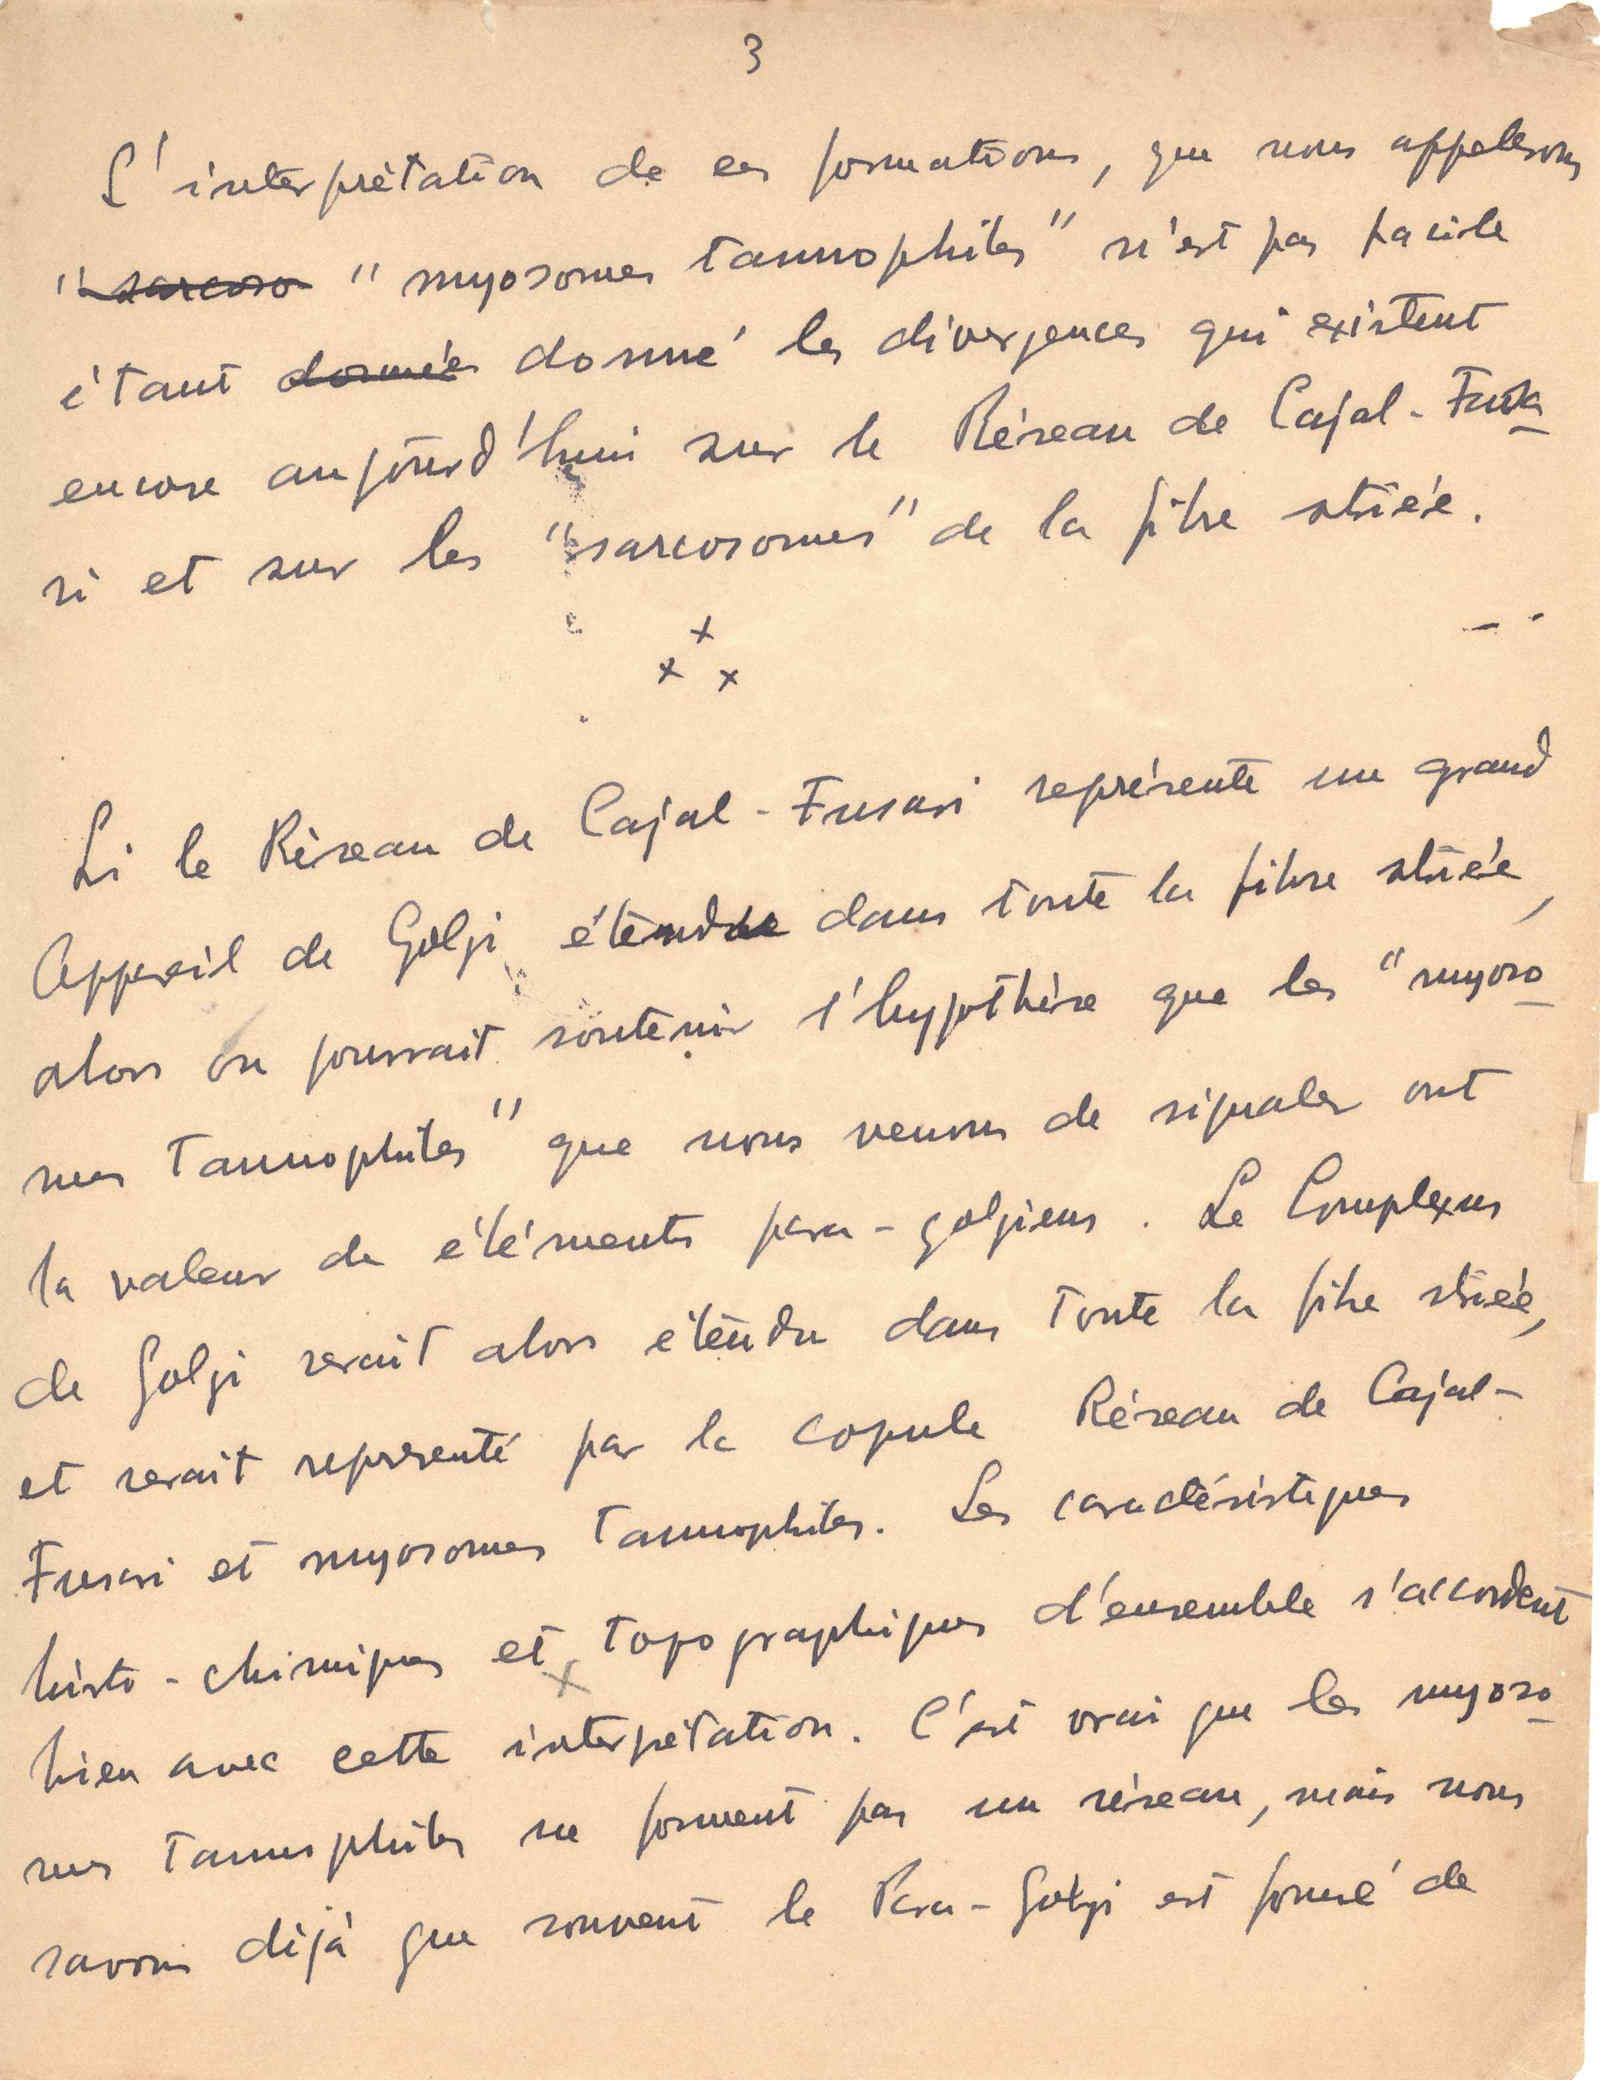 3
L'interprétation de ces formations, que nous appelerons
" sarcoso " myosomes tannophiles" n'est pas facile
étant données donné les divergences qui existent
encore aujourd'hui sur le Réseau de Cajal-Fusa
ri et sur les "sarcosomes" de la fibre striée.
x
x x
Si le Réseau de Cajal-Fusari représente un grand
Appareil de Golgi étendu dans toute la fibre striée,
alors on pourrait soutenir l'hypothèse que les "myoso
mes tannophiles" que nous venons de signaler ont
la valeur de éléments para-golgiens. Le Complexus
de Golgi serait alors étendu dans toute la fibre striée,
et serait représenté par la copule Réseau de Cajal-
Fusari et myosomes tannophiles. Les caractéristiques
histo-chimiques et topographiques d'ensemble s'accordent
bien avec cette interprétation. C'est vrai que les myoso
mes tannophiles ne forment pas un réseau, mais nous
savons déjà que souvent le Para-Golgi est formé de